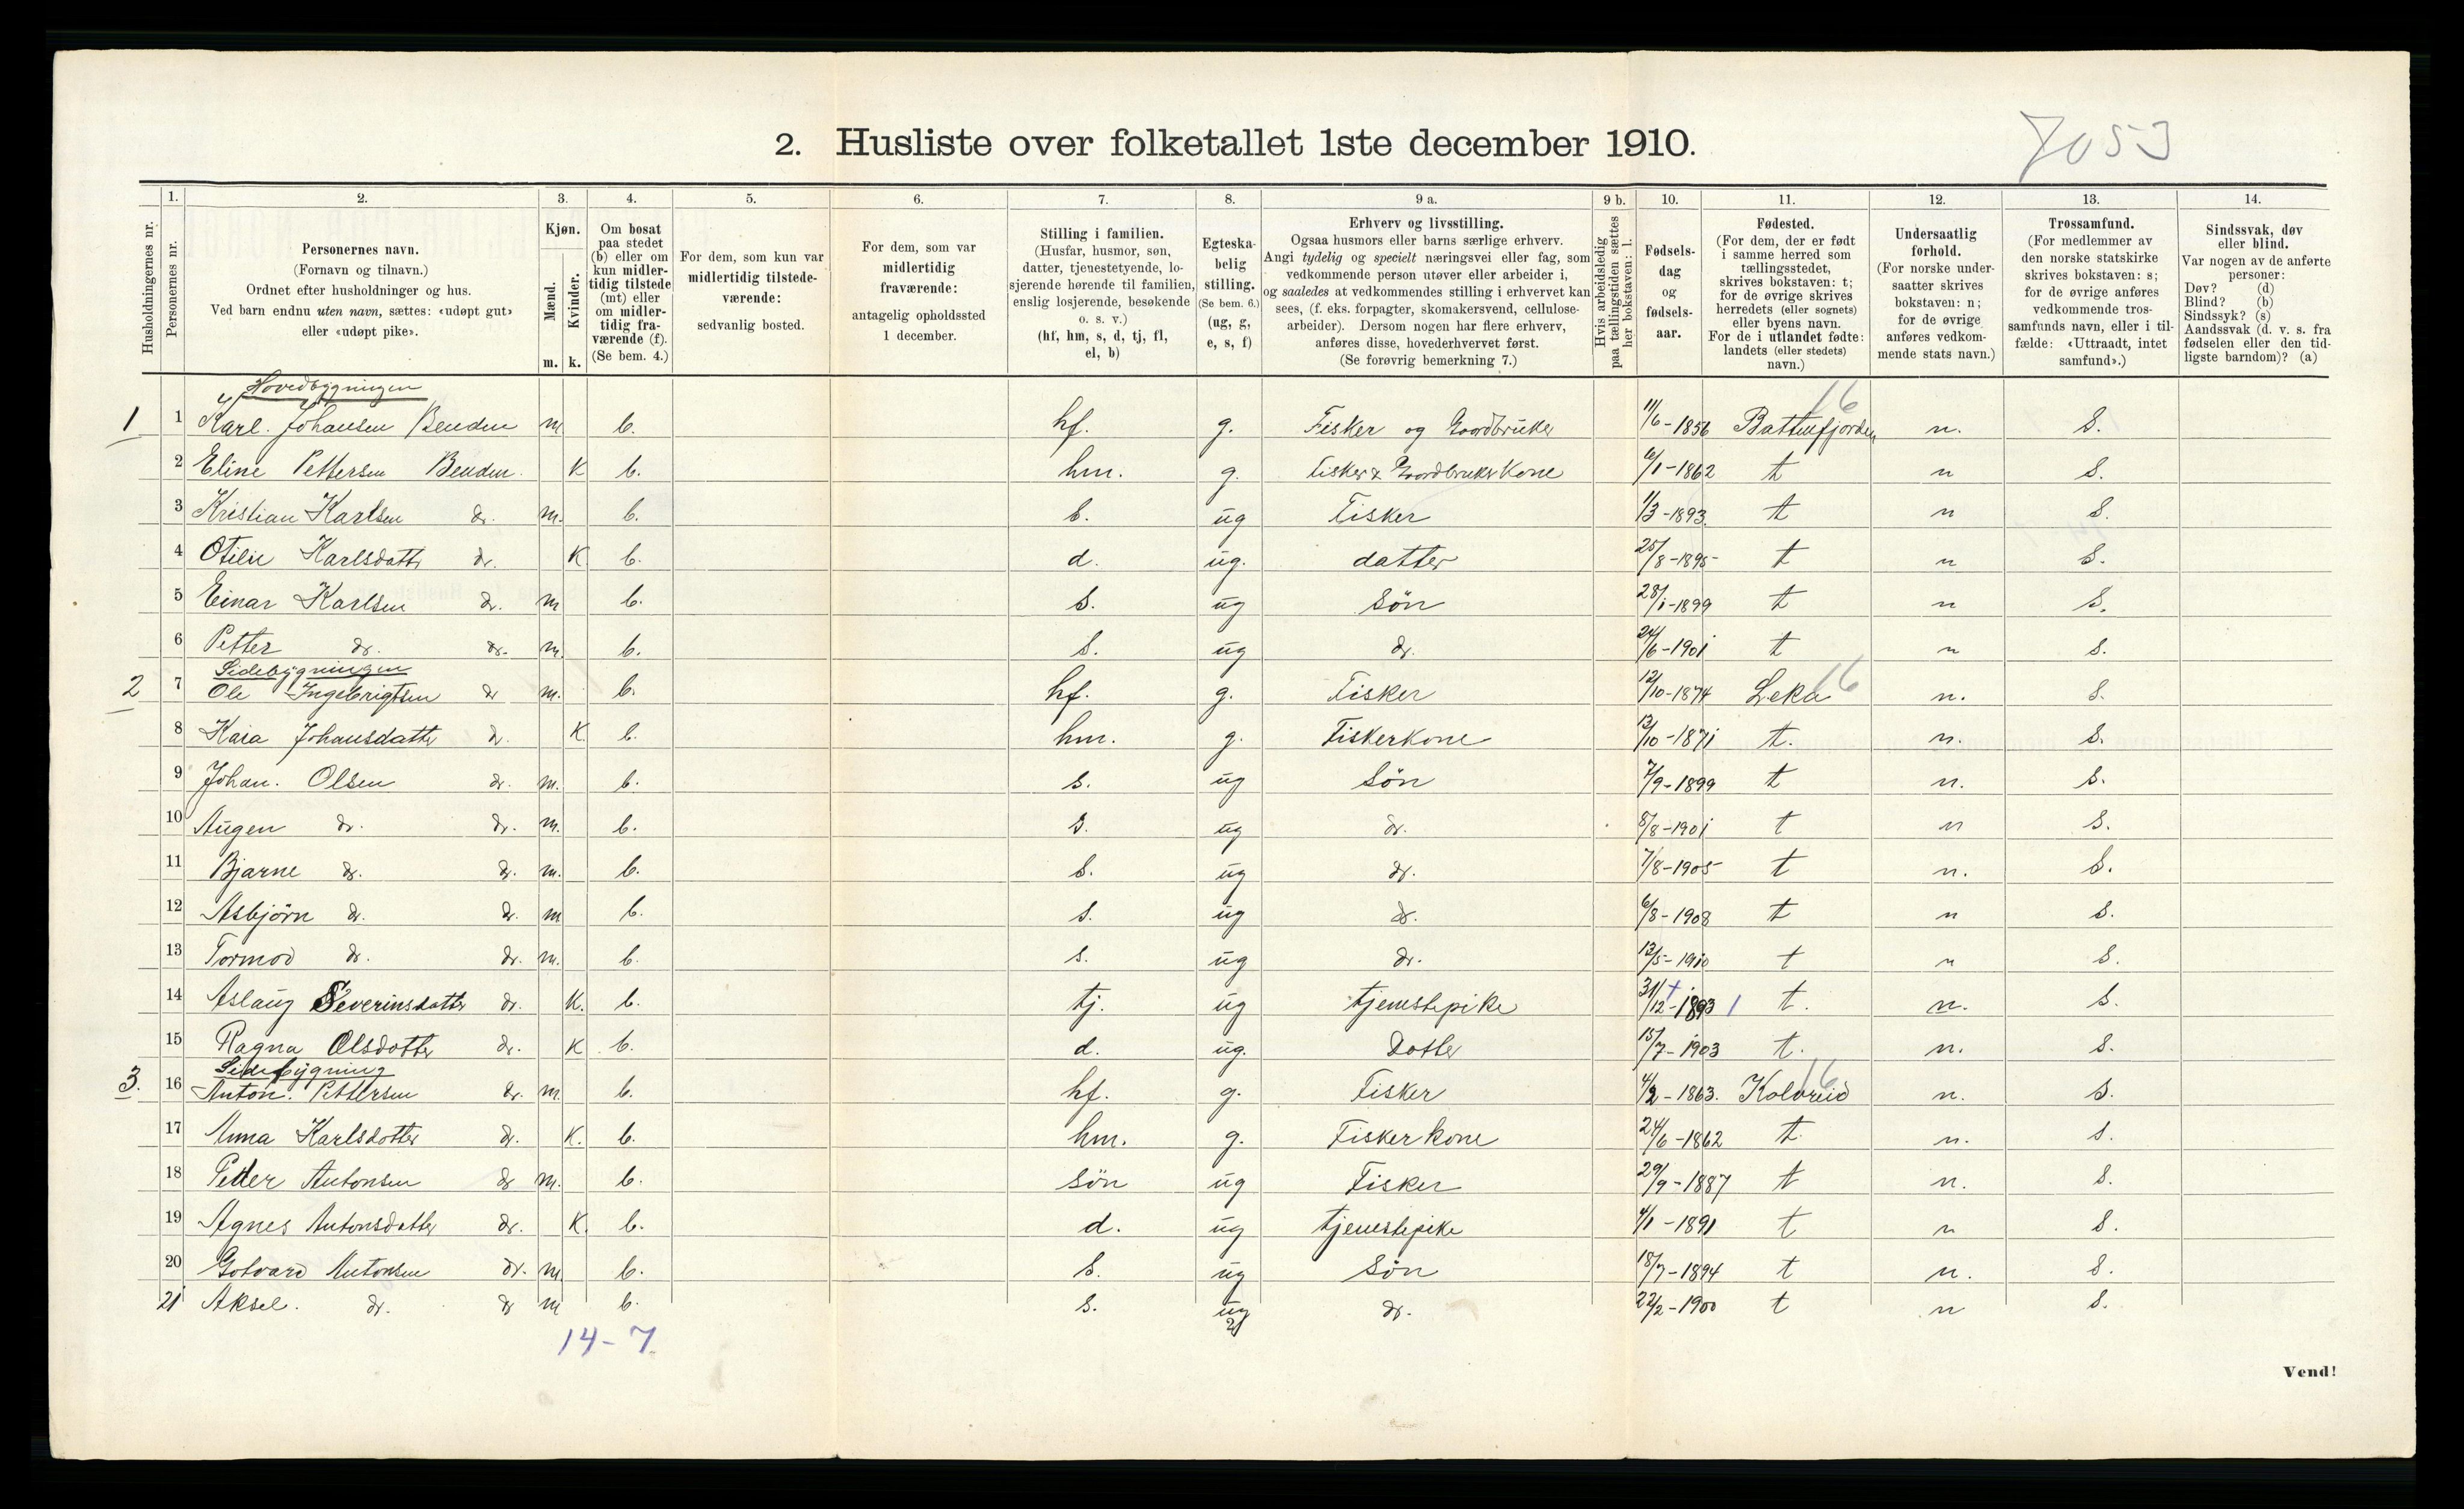 2. Husliste over folketallet 1ste december 1910.
7053
1. 2. 3. 4. 5. 6. 7. 8. 9 a. 9 b. 10. 11. 12. 13. 14.
Husholdningernes nr.
Personernes nr.
Personernes navn.
(Fornavn og tilnavn.)
Ordnet efter husholdninger og hus.
Ved barn endnu uten navn, sættes: «udøpt gut»
eller «udøpt pike».
Kjøn.
Mænd.
Kvinder.
m. k.
Om bosat
paa stedet
(b) eller om
kun midler-
tidig tilstede
(mt) eller
om midler-
tidig fra-
værende (f).
(Se bem. 4.)
For dem, som kun var
midlertidig tilstede-
værende:
sedvanlig bosted.
For dem, som var
midlertidig
fraværende:
antagelig opholdssted
1 december.
Stilling i familien.
(Husfar, husmor, søn,
datter, tjenestetyende, lo-
sjerende hørende til familien,
enslig losjerende, besøkende
o. s. v.)
(hf, hm, s, d, tj, fl,
el, b)
Egteska-
belig
stilling.
(Se bem. 6.)
(ug, g,
e, s, f)
Erhverv og livsstilling.
Ogsaa husmors eller barns særlige erhverv.
Angi tydelig og specielt næringsvei eller fag, som
vedkommende person utøver eller arbeider i,
og saaledes at vedkommendes stilling i erhvervet kan
sees, (f. eks. forpagter, skomakersvend, cellulose-
arbeider). Dersom nogen har flere erhverv,
anføres disse, hovederhvervet først.
(Se forøvrig bemerkning 7.)
Hvis arbeidsledig
paa tællingstiden sættes
her bokstaven: l.
Fødsels-
dag
og
fødsels-
aar.
Fødested.
(For dem, der er født
i samme herred som
tællingsstedet,
skrives bokstaven: t;
for de øvrige skrives
herredets (eller sognets)
eller byens navn.
For de i utlandet fødte:
landets (eller stedets)
navn.)
Undersaatlig
forhold.
(For norske under-
saatter skrives
bokstaven: n;
for de øvrige
anføres vedkom-
mende stats navn.)
Trossamfund.
(For medlemmer av
den norske statskirke
skrives bokstaven: s;
for de øvrige anføres
vedkommende tros-
samfunds navn, eller i til-
fælde: «Uttraadt, intet
samfund».)
Sindssvak, døv
eller blind.
Var nogen av de anførte
personer:
Døv? (d)
Blind? (b)
Sindssyk? (s)
Aandssvak (d. v. s. fra
fødselen eller den tid-
ligste barndom)? (a)
Hovedbygningen 16
1 1 Karl. Johansen Benden m b. hf. g. Fisker og Gaardbruker 11/6-1856 Battenfjorden n. s.
2 Eline Pettersen Benden. K b. hm. g. Fisker & Gaardbruker Kone 6/1-1862 t n s.
3 Kristian Karlsen do. m. b. s. ug Fisker 1/3-1893. t n s.
4 Otilie Karlsdatter do. K b. d. ug. datter 25/8-1895 t n s.
5 Einar Karlsen do. m b. s. ug Søn 28/1-1899 t n s.
6 Petter do. do. m. b. s. ug do. 24/6-1901 t n s.
Sidebygningen 16
2 7 Ole Ingebrigtsen do m. b. hf. g. Fisker 12/10-1874 Leka n. s.
8 Kaia Johansdatter do. K. b. hm. g. Fiskerkone 13/10-1871 t. n. s.
9 Johan. Olsen do. m. b. s. ug Søn 7/9-1899 t n. s.
10 Augen do. do. m. b. s. ug do. 8/8-1901 t n s.
11 Bjarne do. do. m. b. s. ug do. 7/8-1905 t n. s.
12 Asbjörn do. do. m b. s. ug do. 6/8-1908 t n s.
13 Tormod do. do. m. b. s. ug do. 12/5-1910 t n s.
14 Aslaug Severinsdatter do. K. b. tj. ug tjenestepike 31/12-1893 t. n. s.
15 Ragna Olsdatter do. K b. d. ug. Datter 15/7-1903 t. n. s.
Sidebygning 16
3. 16 Anton. Pettersen do. m. b. hf. g. Fisker 4/2-1863. Kolvreid n. s.
17 Anna Karlsdotter do. K. b. hm. g. Fiskerkone 24/6-1862 t. n. s.
18 Petter Antonsen do m. b. søn ug Fisker 29/9-1887 t n. s.
19 Agnes Antonsdatter do. K. b. d. ug tjenestepike 4/1-1891 t n s.
20 Gotvard Antonsen do. m b. s. ug Søn 18/7-1894 t n. s.
21 Aksel. do. do m b. s. ug do. 22/2-1900 t n s.
21
14-7.
Vend!